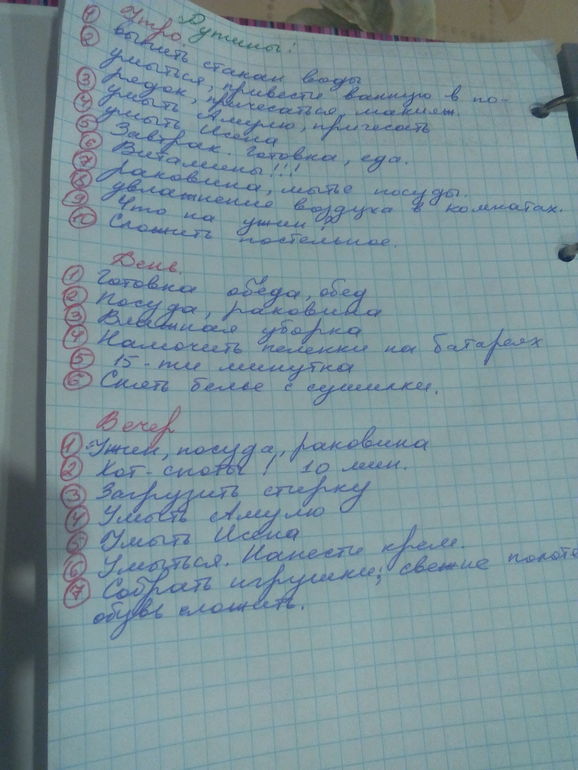 Рутины!
Утро.
① выпить стакан воды
② умыться, привести ванную в по-
рядок, причесаться, макияж.
③ умыть Амулю, причесать
④ умыть Исена
⑤ Завтрак. Готовка, еда.
⑥ Витамины!!!
⑦ раковина, мытьё посуды.
⑧ увлажнение воздуха в комнатах.
⑨ Что на ужин?
⑩ Сложить постельное.
День.
① Готовка обеда, обед
② Посуда, раковина
③ Влажная уборка
④ Намочить пеленки на батареях
⑤ 15-ти минутка
⑥ Снять белье с сушилки.
Вечер
① Ужин, посуда, раковина
② Хот-споты! 10 мин.
③ Загрузить стирку
④ Умыть Амулю
⑤ Умыть Исена
⑥ Умыться. Нанести крем
⑦ Собрать игрушки, свежие полоте
обувь сложить.